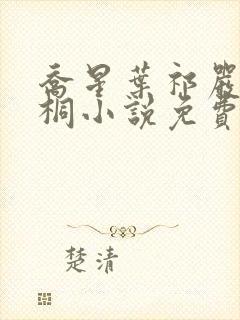 喬星葉祁嚴
桐小說免費
楚清